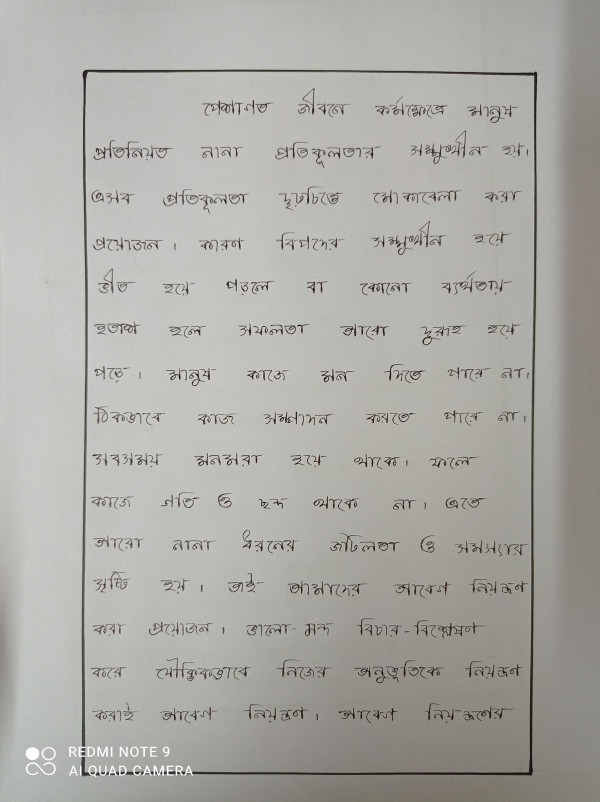 পেশাগত জীবনে কর্মক্ষেত্রে মানুষ
প্রতিনিয়ত নানা প্রতিকূলতার সম্মুখীন হয়।
এসব প্রতিকূলতা দৃঢ়চিত্তে মোকাবেলা করা
প্রয়োজন। কারণ বিপদের সম্মুখীন হয়ে
ভীত হয়ে পড়লে বা কোনো ব্যর্থতায়
হতাশ হলে সফলতা আরো দুরূহ হয়ে
পড়ে। মানুষ কাজে মন দিতে পারে না।
ঠিকভাবে কাজ সম্পাদন করতে পারে না।
সবসময় মনমরা হয়ে থাকে। ফলে
কাজে গতি ও ছন্দ থাকে না। এতে
আরো নানা ধরনের জটিলতা ও সমস্যার
সৃষ্টি হয়। তাই আমাদের আবেগ নিয়ন্ত্রণ
করা প্রয়োজন। ভালো-মন্দ বিচার-বিশ্লেষণ
করে যৌক্তিকভাবে নিজের অনুভূতিকে নিয়ন্ত্রণ
করাই আবেগ নিয়ন্ত্রণ। আবেগ নিয়ন্ত্রণের
REDMI NOTE 9
AI QUAD CAMERA